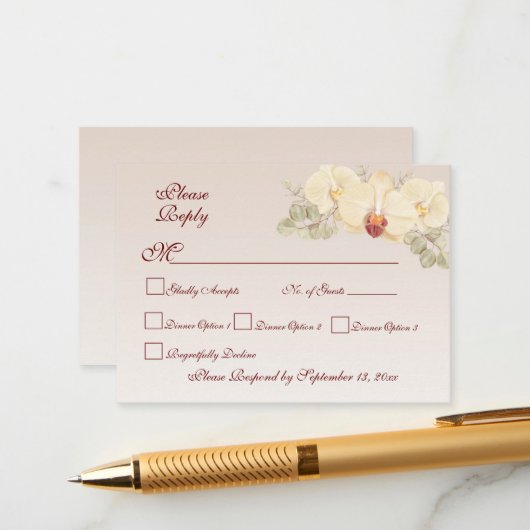 Please
Reply
M
Gladly Accepts No. of Guests
Dinner Option 1 Dinner Option 2 Dinner Option 3
Regretfully Decline
Please Respond by September 13, 20xx